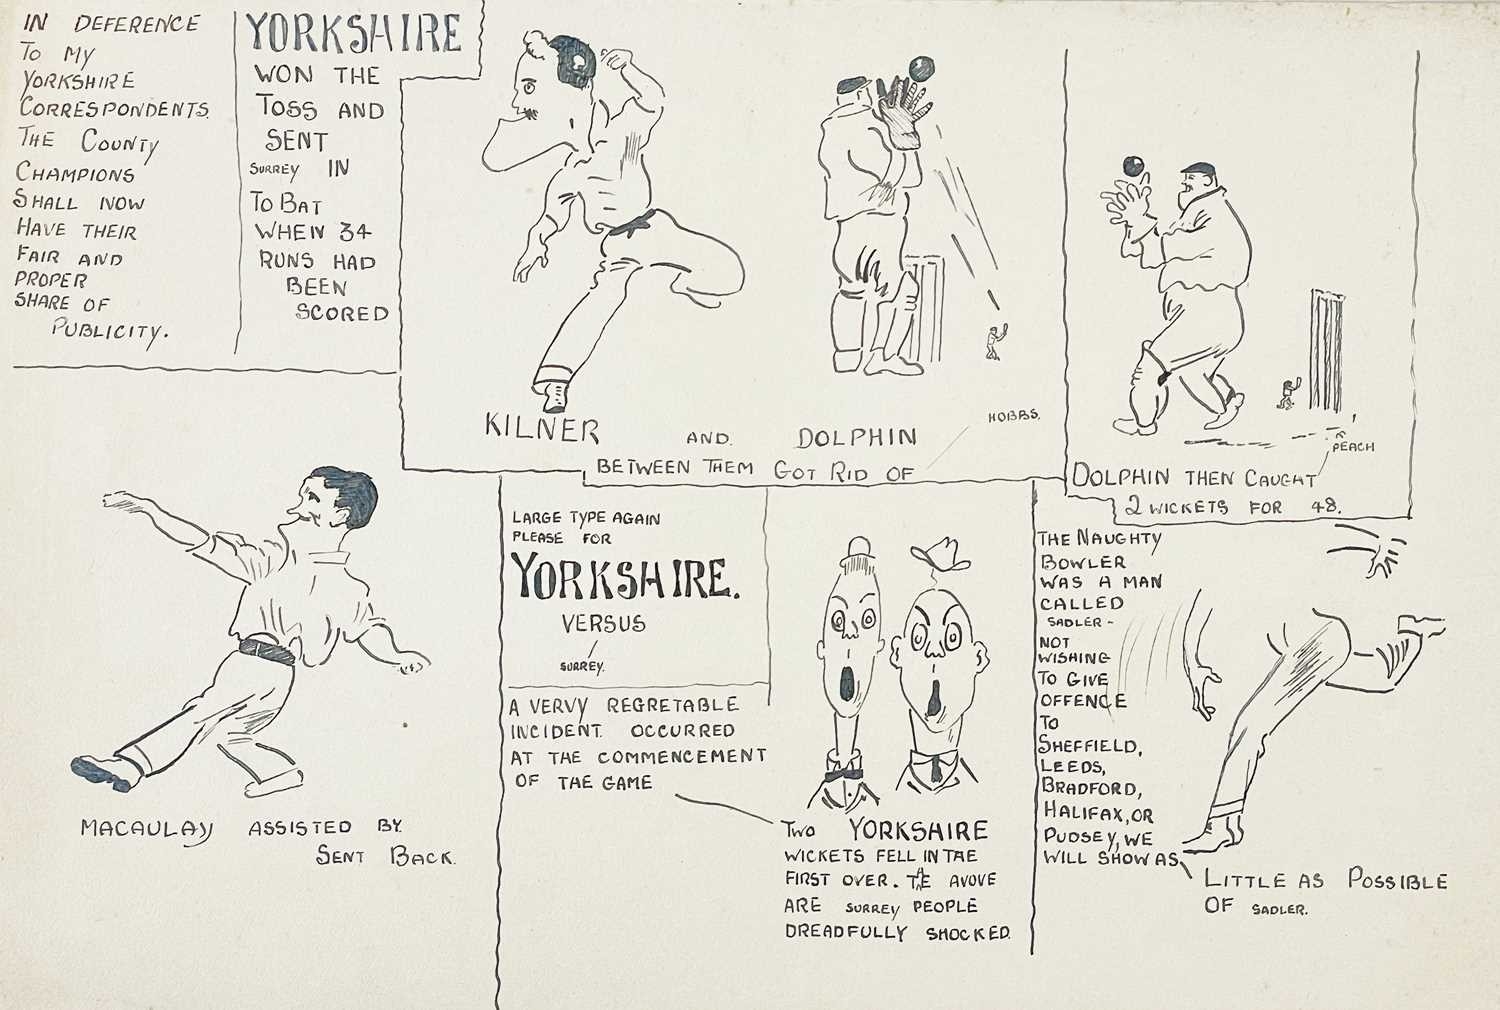 IN DEFERENCE
TO MY
YORKSHIRE
CORRESPONDENTS.
THE COUNTY
CHAMPIONS
SHALL NOW
HAVE THEIR
FAIR AND
PROPER
SHARE OF
PUBLICITY.
YORKSHIRE
WON THE
TOSS AND
SENT
SURREY IN
TO BAT
WHEN 34
RUNS HAD
BEEN
SCORED
KILNER AND. DOLPHIN
HOBBS.
BETWEEN THEM GOT RID OF
PEACH
DOLPHIN THEN CAUGHT
2 WICKETS FOR 48.
MACAULAY ASSISTED BY.
SENT BACK.
LARGE TYPE AGAIN
PLEASE FOR
YORKSHIRE.
VERSUS
SURREY.
A VERVY REGRETABLE
INCIDENT. OCCURRED
AT THE COMMENCEMENT
OF THE GAME
TWO YORKSHIRE
WICKETS FELL IN THE
FIRST OVER. THE AVOVE
ARE SURREY PEOPLE
DREADFULLY SHOCKED.
THE NAUGHTY
BOWLER
WAS A MAN
CALLED
SADLER -
NOT
WISHING
TO GIVE
OFFENCE
TO
SHEFFIELD,
LEEDS,
BRADFORD,
HALIFAX, OR
PUDSEY, WE
WILL SHOW AS
LITTLE AS POSSIBLE
OF SADLER.